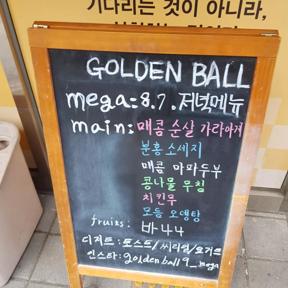 기다리는 것이 아니라,
GOLDEN BALL
mega:8.7.저녁메뉴
main:매콤순살 가라아게
분홍소세지
매콤 마파두부
콩나물무침
치킨무
모듬 오뎅탕
fruits: 바나나
디저트:토스트/씨리얼/요거트
인스타:goldenball9_mega